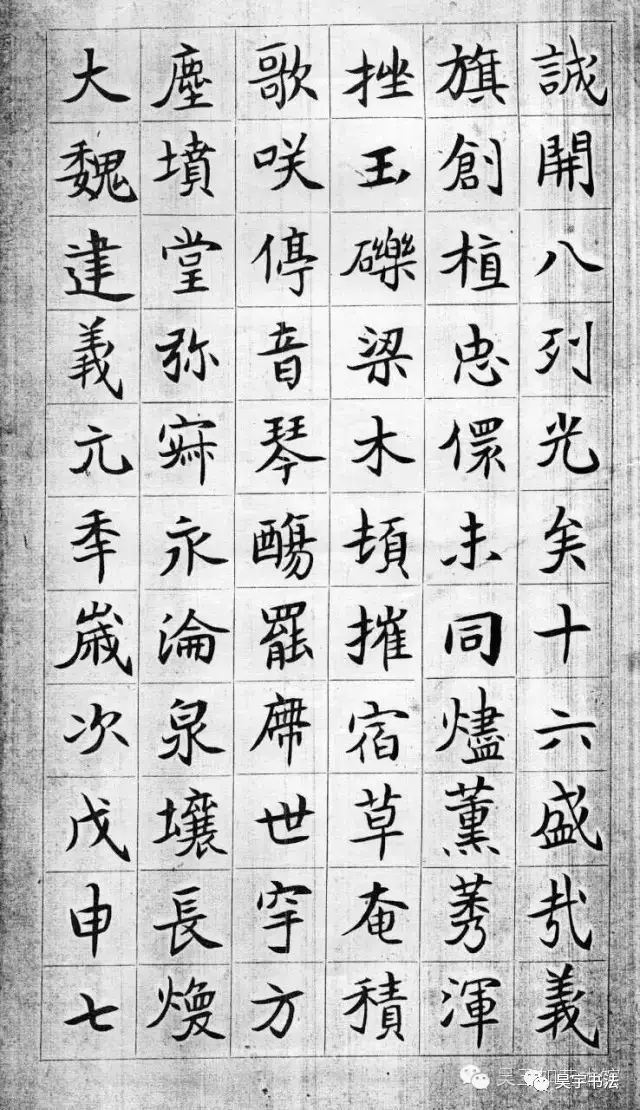 誠開八列光矣十六盛㢤義
旗創植忠儇未同燼薰莠渾
挫玉礫梁木頓摧宿草奄積
歌咲停音琴觴罷席世宇方
塵墳堂弥寐永淪泉壤長燠
大魏建義元秊歳次戊申七
吴宇书法